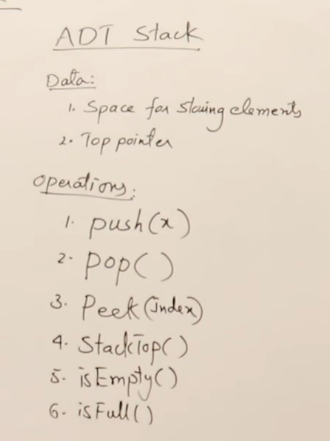 ADT Stack
Data:
1. Space for storing elements
2. Top pointer
Operations:
1. push(x)
2. pop()
3. Peek(index)
4. StackTop()
5. isEmpty()
6. isFull()